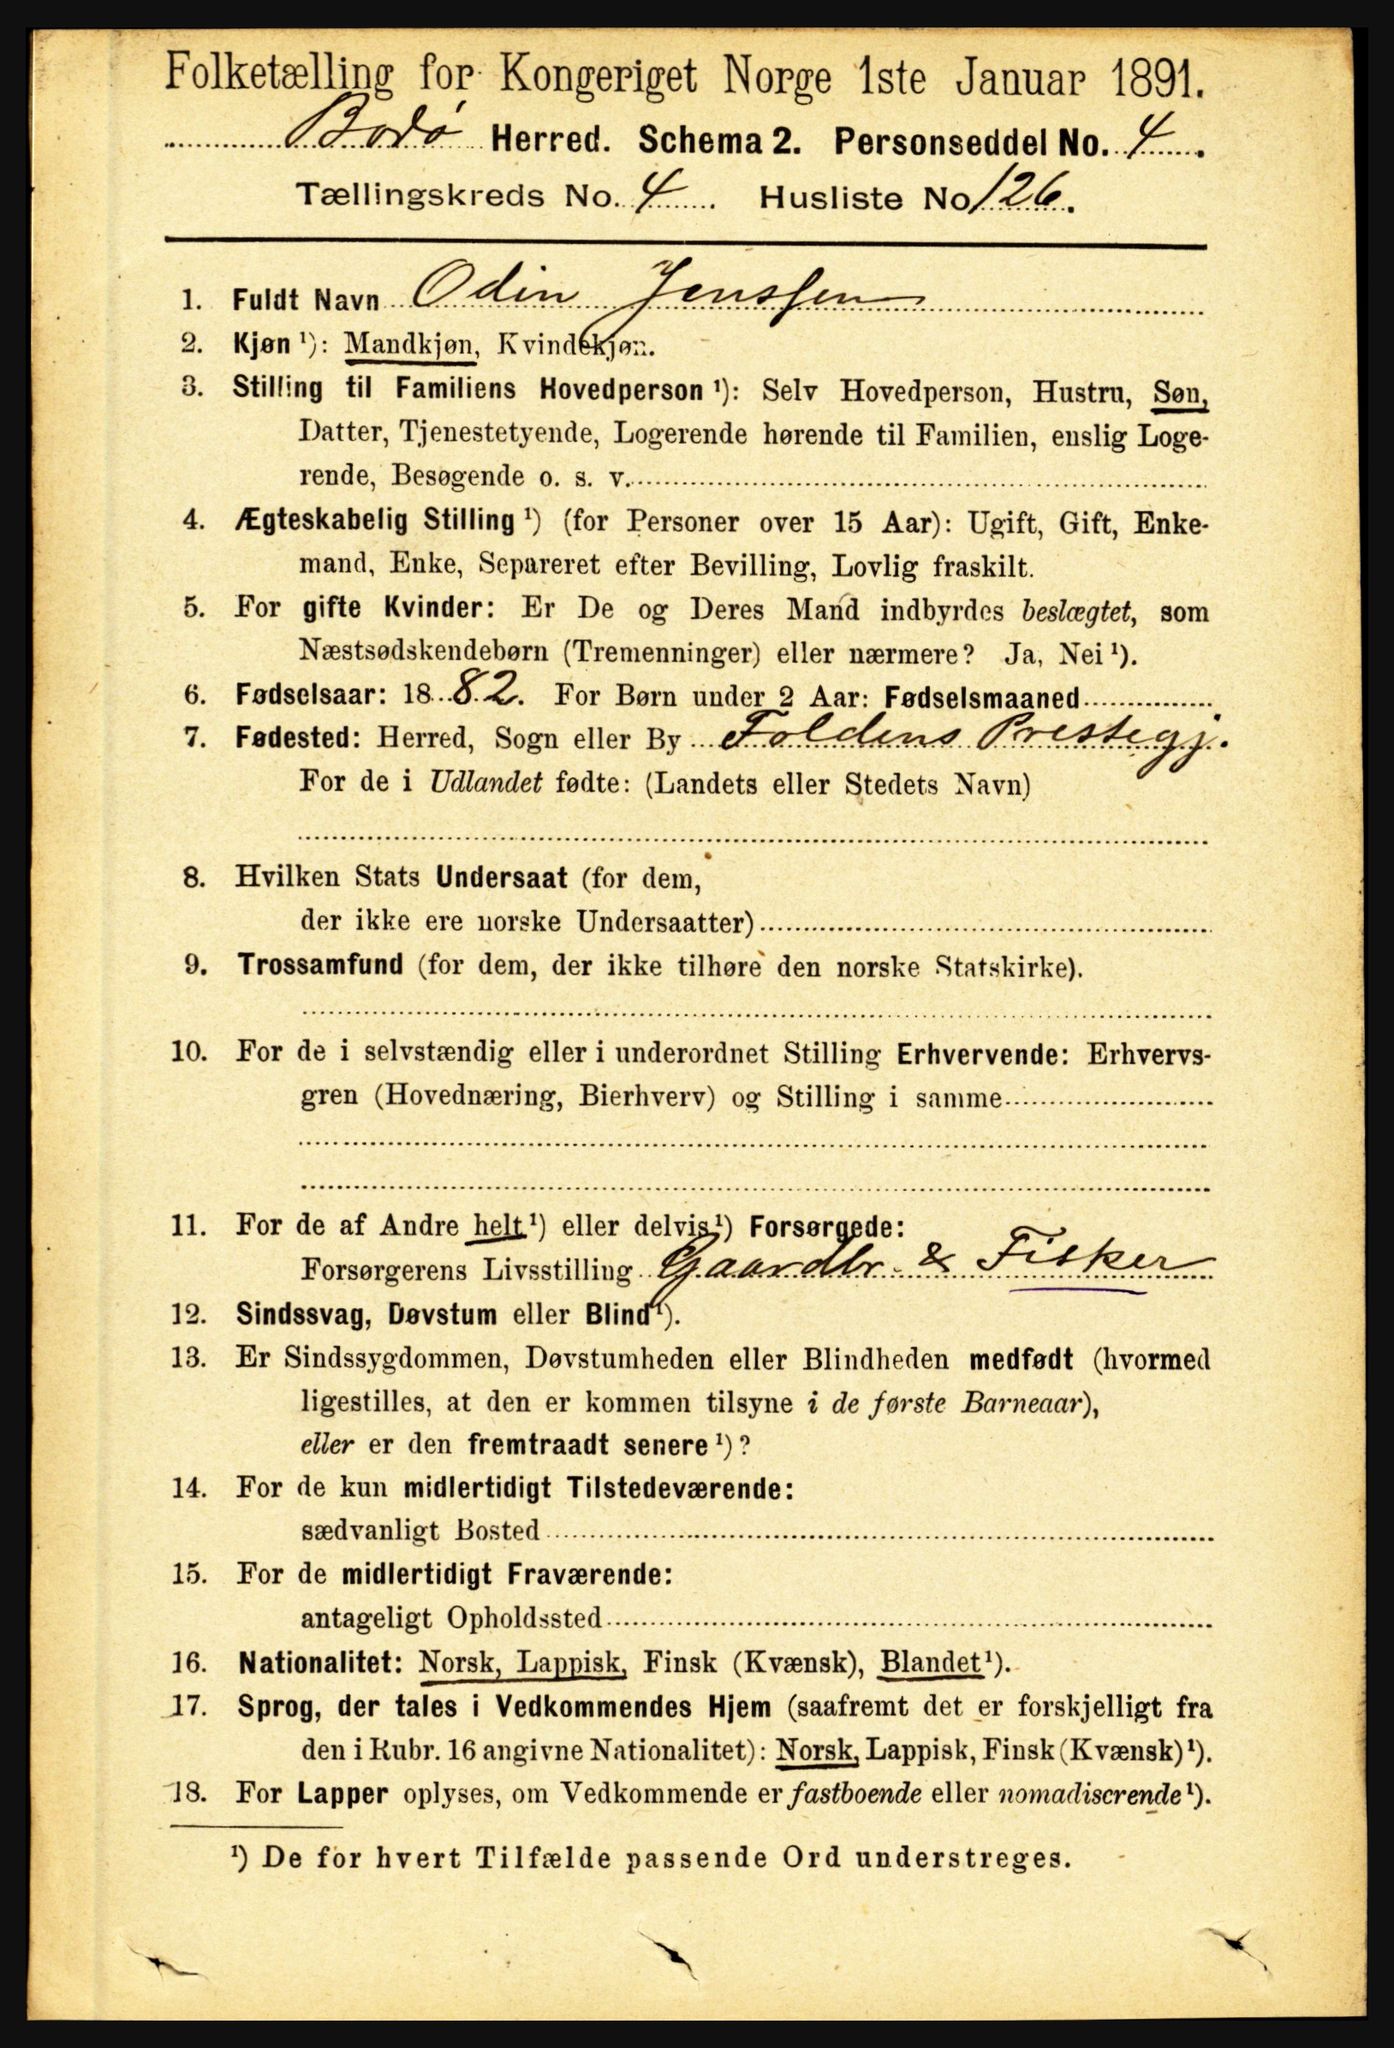 Folketælling for Kongeriget Norge 1ste Januar 1891.
Bodø Herred. Schema 2. Personseddel No. 4.
Tællingskreds No. 4. Husliste No 126.
1. Fuldt Navn Odin Jenssen
2. Kjøn ¹): Mandkjøn, Kvindekjøn.
3. Stilling til Familiens Hovedperson ¹): Selv Hovedperson, Hustru, Søn,
Datter, Tjenestetyende, Logerende hørende til Familien, enslig Loge-
rende, Besøgende o. s. v.
4. Ægteskabelig Stilling ¹) (for Personer over 15 Aar): Ugift, Gift, Enke-
mand, Enke, Separeret efter Bevilling, Lovlig fraskilt.
5. For gifte Kvinder: Er De og Deres Mand indbyrdes beslægtet, som
Næstsødskendebørn (Tremenninger) eller nærmere? Ja, Nei ¹).
6. Fødselsaar: 1882. For Børn under 2 Aar: Fødselsmaaned
7. Fødested: Herred, Sogn eller By Foldens Prestegj.
For de i Udlandet fødte: (Landets eller Stedets Navn)
8. Hvilken Stats Undersaat (for dem,
der ikke ere norske Undersaatter)
9. Trossamfund (for dem, der ikke tilhøre den norske Statskirke).
10. For de i selvstændig eller i underordnet Stilling Erhvervende: Erhvervs-
gren (Hovednæring, Bierhverv) og Stilling i samme
11. For de af Andre helt ¹) eller delvis ¹) Forsørgede:
Forsørgerens Livsstilling Gaardbr. & Fisker
12. Sindssvag, Døvstum eller Blind ¹).
13. Er Sindssygdommen, Døvstumheden eller Blindheden medfødt (hvormed
ligestilles, at den er kommen tilsyne i de første Barneaar),
eller er den fremtraadt senere ¹)?
14. For de kun midlertidigt Tilstedeværende:
sædvanligt Bosted
15. For de midlertidigt Fraværende:
antageligt Opholdssted
16. Nationalitet: Norsk, Lappisk, Finsk (Kvænsk), Blandet ¹).
17. Sprog, der tales i Vedkommendes Hjem (saafremt det er forskjelligt fra
den i Rubr. 16 angivne Nationalitet): Norsk, Lappisk, Finsk (Kvænsk) ¹).
18. For Lapper oplyses, om Vedkommende er fastboende eller nomadiserende ¹).
¹) De for hvert Tilfælde passende Ord understreges.